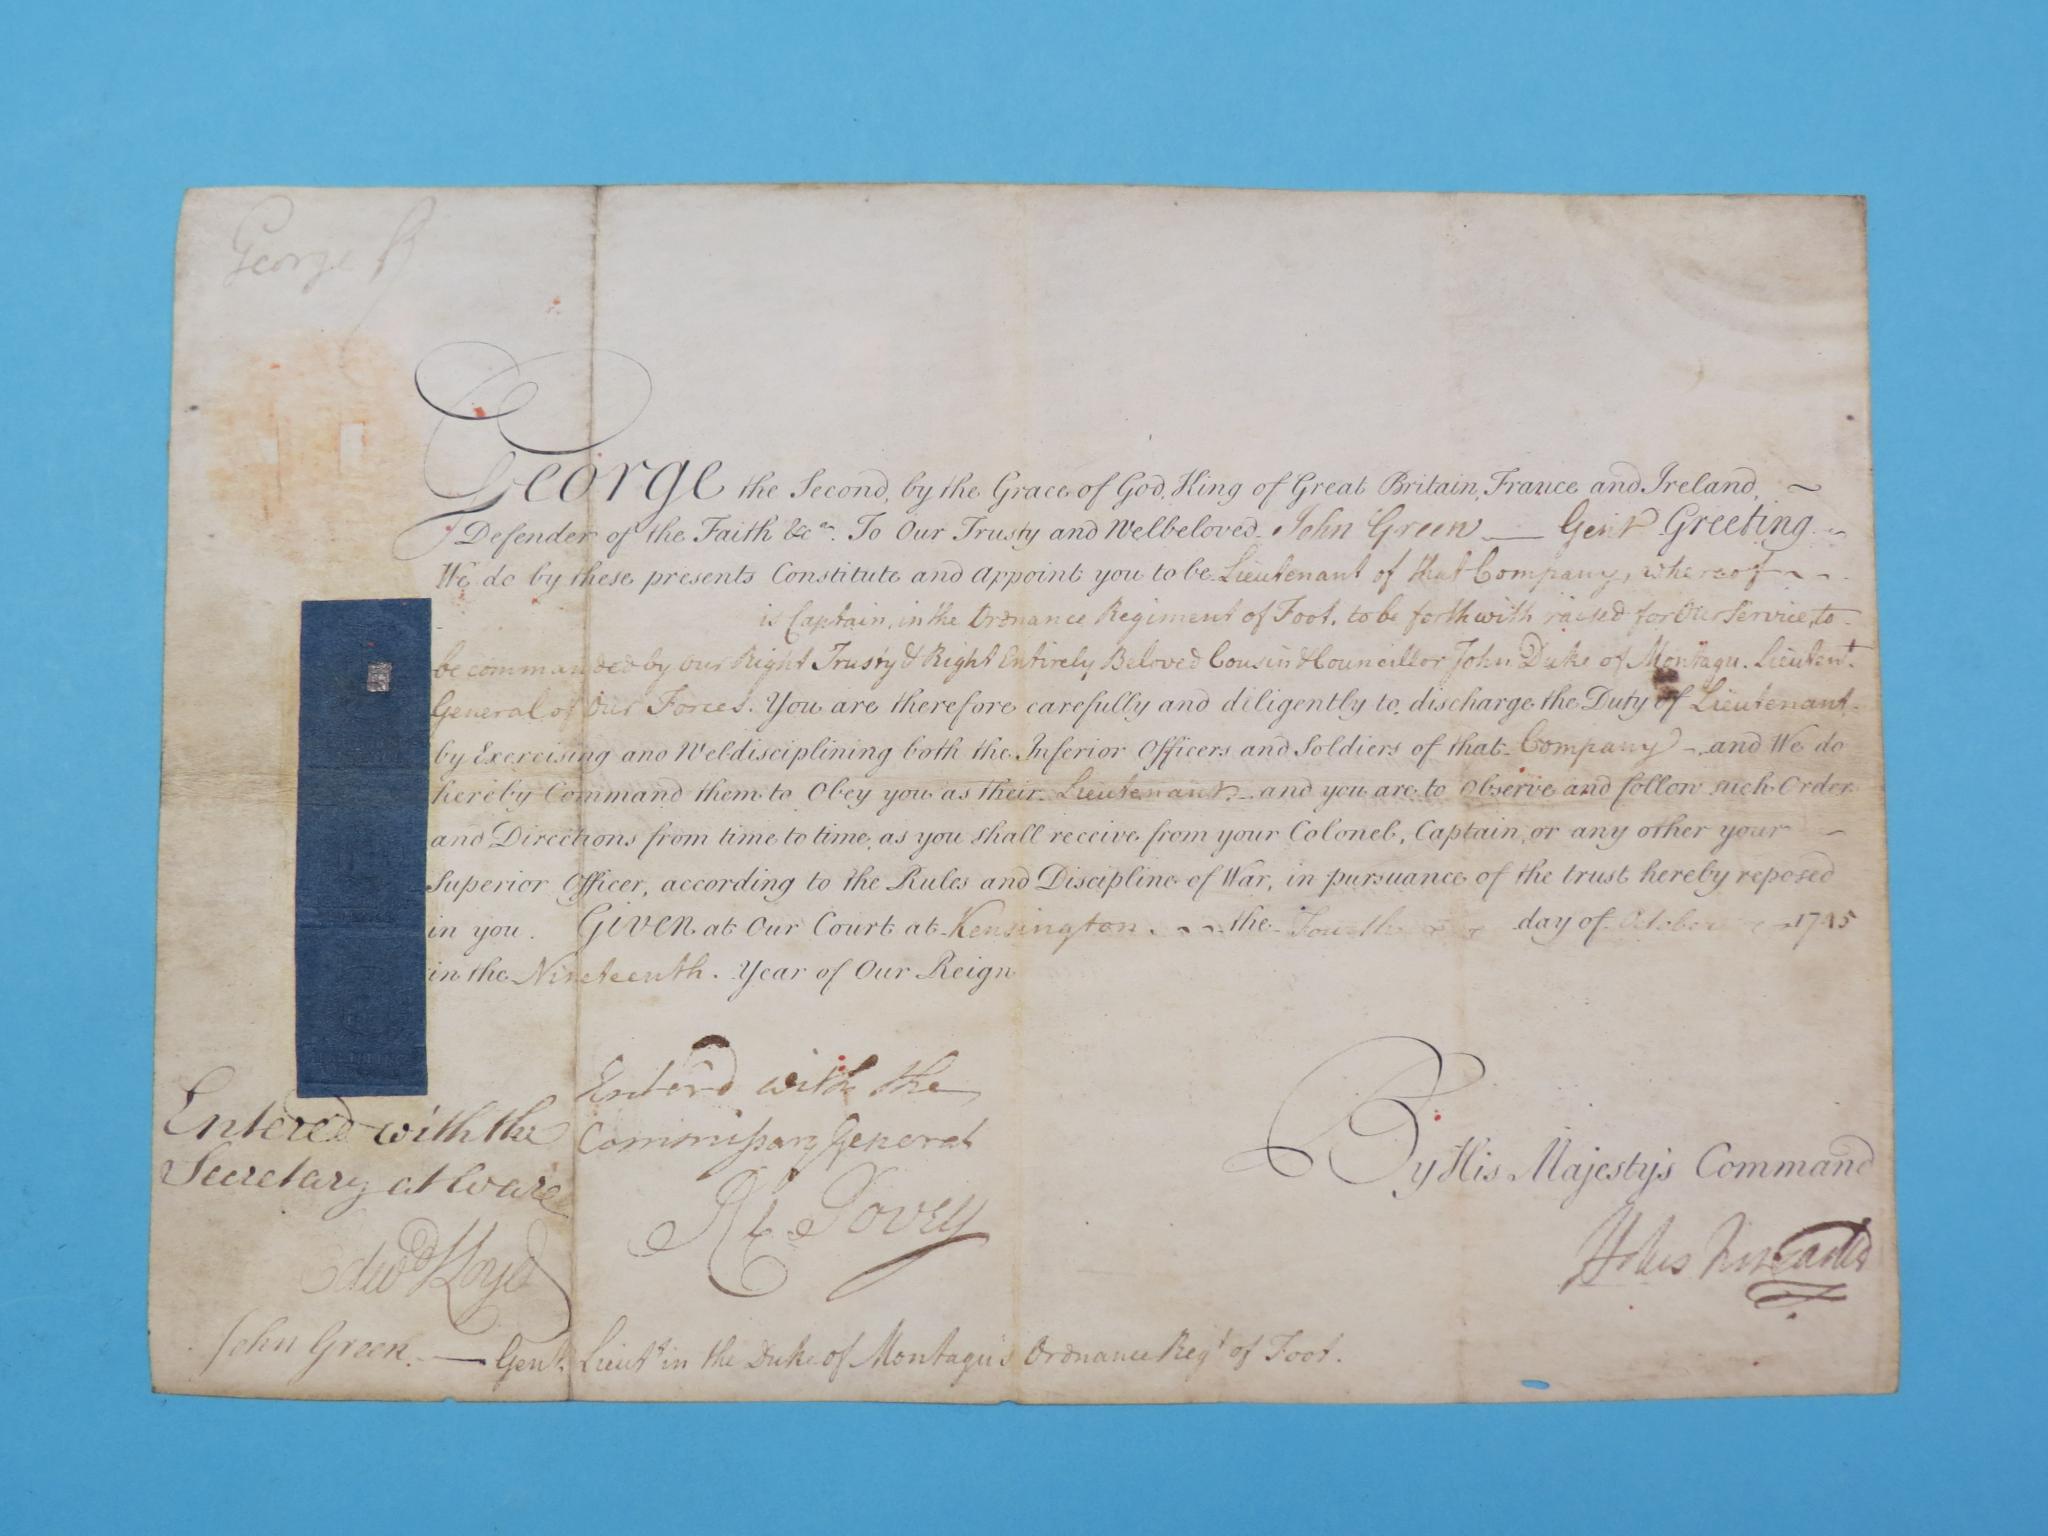 George R
George the Second, by the Grace of God, King of Great Britain, France and Ireland,
Defender of the Faith &c.a To Our Trusty and Welbeloved John Green Gent Greeting.
We do by these presents Constitute and Appoint you to be Lieutenant of that Company, whereof
is Captain, in the Ordnance Regiment of Foot, to be forthwith raised for Our Service, to
be commanded by Our Right Trusty & Right Entirely Beloved Cousin & Councillor John Duke of Montagu. Lieuten.t
General of Our Forces. You are therefore carefully and diligently to discharge the Duty of Lieutenant
by Exercising and Weldisciplining both the Inferior Officers and Soldiers of that Company and We do
hereby Command them to Obey you as their Lieutenant and you are to Observe and follow such Orders
and Directions from time to time, as you shall receive from your Colonel, Captain, or any other your
Superior Officer, according to the Rules and Discipline of War, in pursuance of the trust hereby reposed
in you. Given at Our Court at Kensington the Fourth day of October 1745
in the Nineteenth Year of Our Reign
Enter'd with the
Commissary General
Tovey
Entered with the
Secretary at Warr
Edwd Lloyd
By His Majesty's Command
Holles Newcastle
John Green. Gent. Lieut.t in the Duke of Montagu's Ordnance Reg.t of Foot.